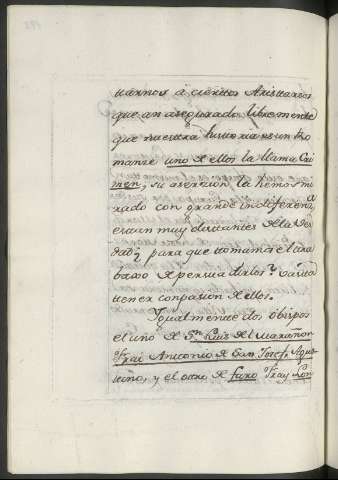 uarnos á ciertos Aristarcos
que an asegurado libremente
que nuestra historia es un Ro
manze uno de ellos la llama Cri
men, su asersion la hemos mi
rado con grande indiferen
estan muy distantes de la Ver
dad para que tomamos el tra
baxo de persuadirlos
tener conpasion de ellos.
Igualmente dos obispos
el uno de Sn. Luis de el Marañon
Frai Antonio de San Josef Agus
tino, y el otro de faro Fray Lon